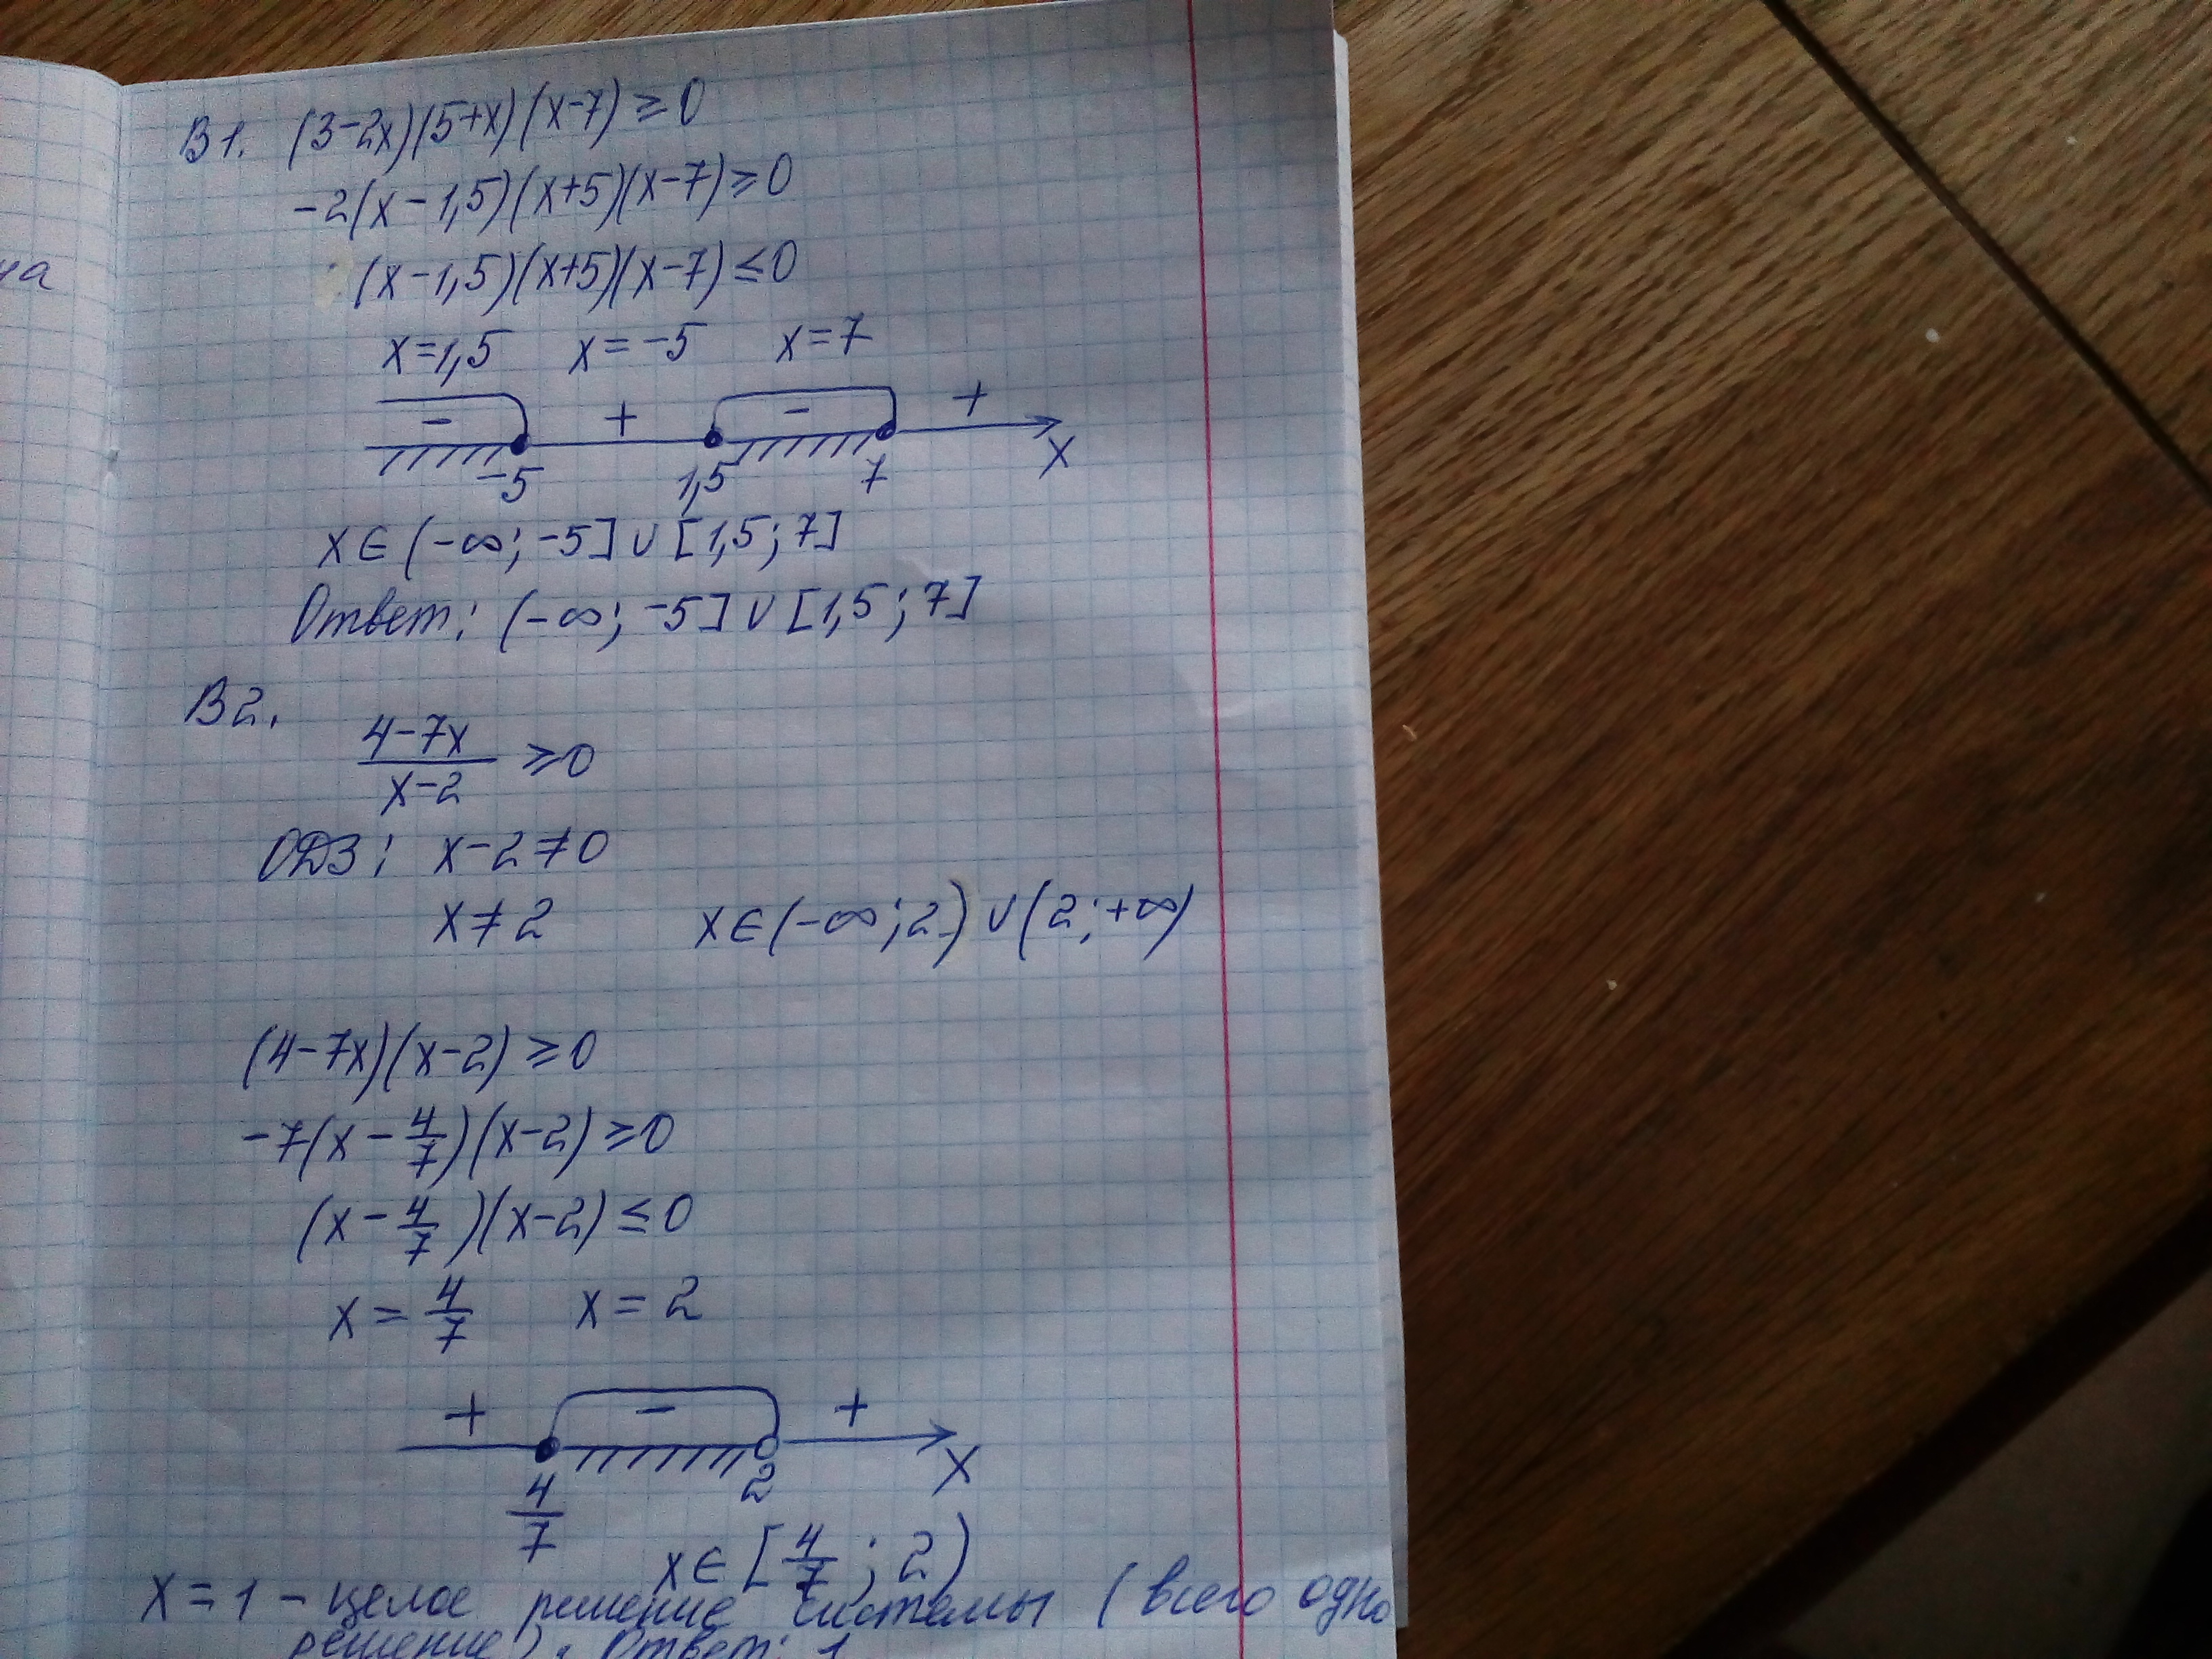 ча
В1. (3-2x)(5+x)(x-7)≥0
-2(x-1,5)(x+5)(x-7)≥0
(x-1,5)(x+5)(x-7)≤0
x=1,5 x=-5 x=7
- + - +
-5 1,5 7 x
x∈(-∞;-5]∪[1,5;7]
Ответ: (-∞;-5]∪[1,5;7]
В2.
\frac{4-7x}{x-2} ≥0
ОДЗ: x-2≠0
x≠2 x∈(-∞;2)∪(2;+∞)
(4-7x)(x-2)≥0
-7(x-\frac{4}{7})(x-2)≥0
(x-\frac{4}{7})(x-2)≤0
x=\frac{4}{7} x=2
+ - +
\frac{4}{7} 2 x
x∈[\frac{4}{7};2)
x=1 - целое решение системы (всего одно
решение). Ответ: 1